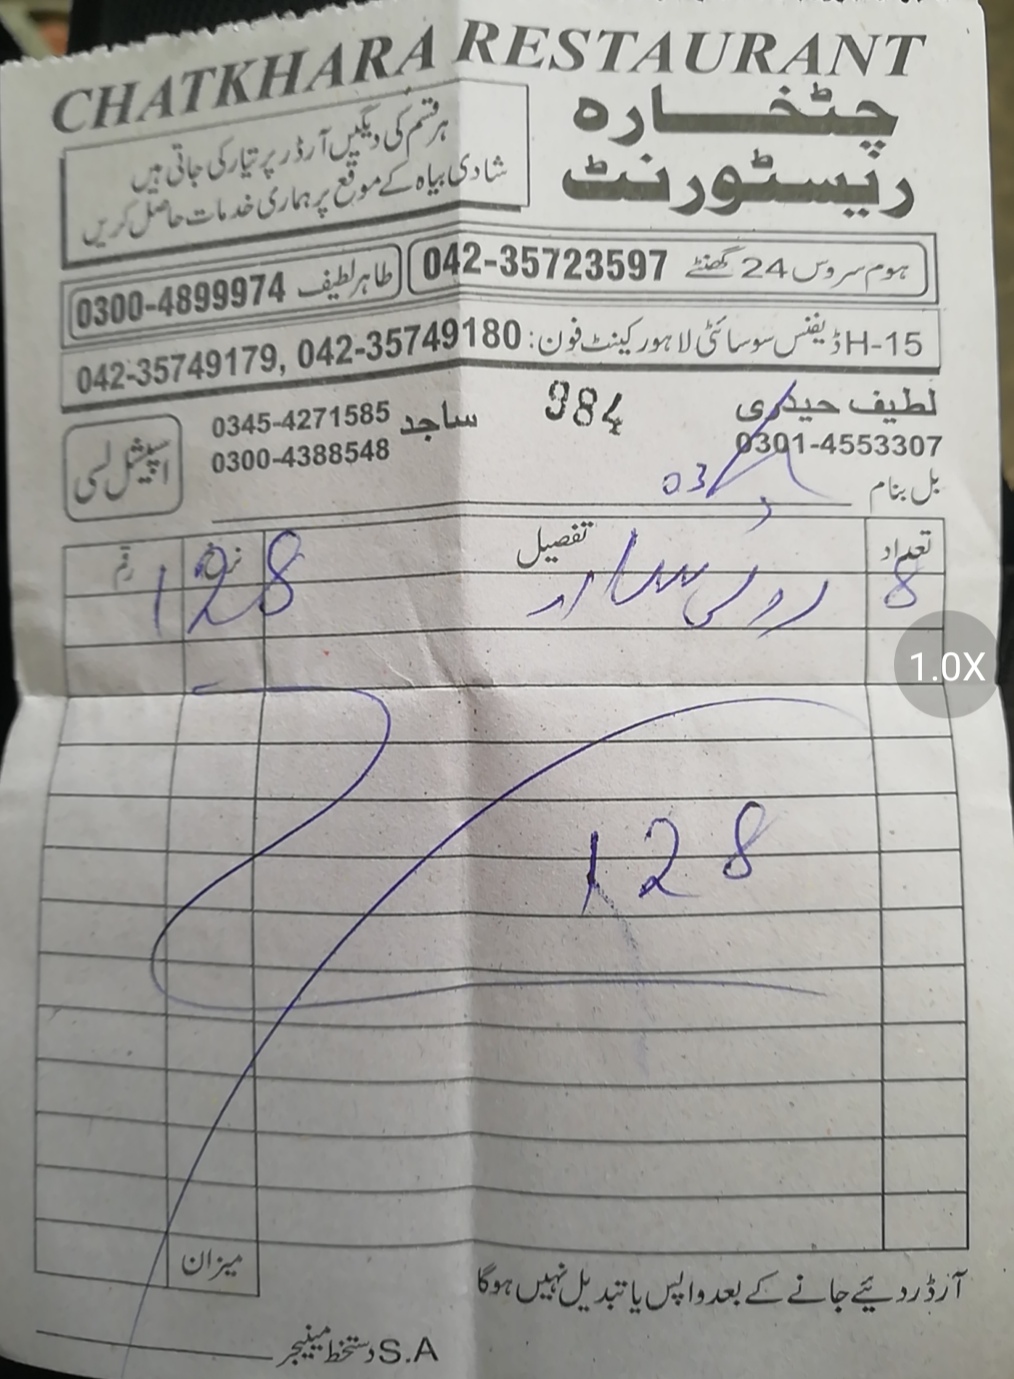 CHATKHARA RESTAURANT
چٹخارہ
ریسٹورنٹ
ہر قسم کی دیگیں آرڈر پر تیار کی جاتی ہیں
شادی بیاہ کے موقع پر ہماری خدمات حاصل کریں
ہوم سروس 24 گھنٹے 042-35723597
طاہر لطیف 0300-4899974
H-15 ڈیفنس سوسائٹی لاہور کینٹ فون: 042-35749179, 042-35749180
لطیف حیدری
0301-4553307
984
ساجد 0345-4271585
0300-4388548
اسپیشل لسی
بل بنام
03
تعداد تفصیل نرخ رقم
8 روٹی 128
128
میزان
آرڈر دئیے جانے کے بعد واپس یا تبدیل نہیں ہوگا
S.A دستخط مینیجر
1.0X